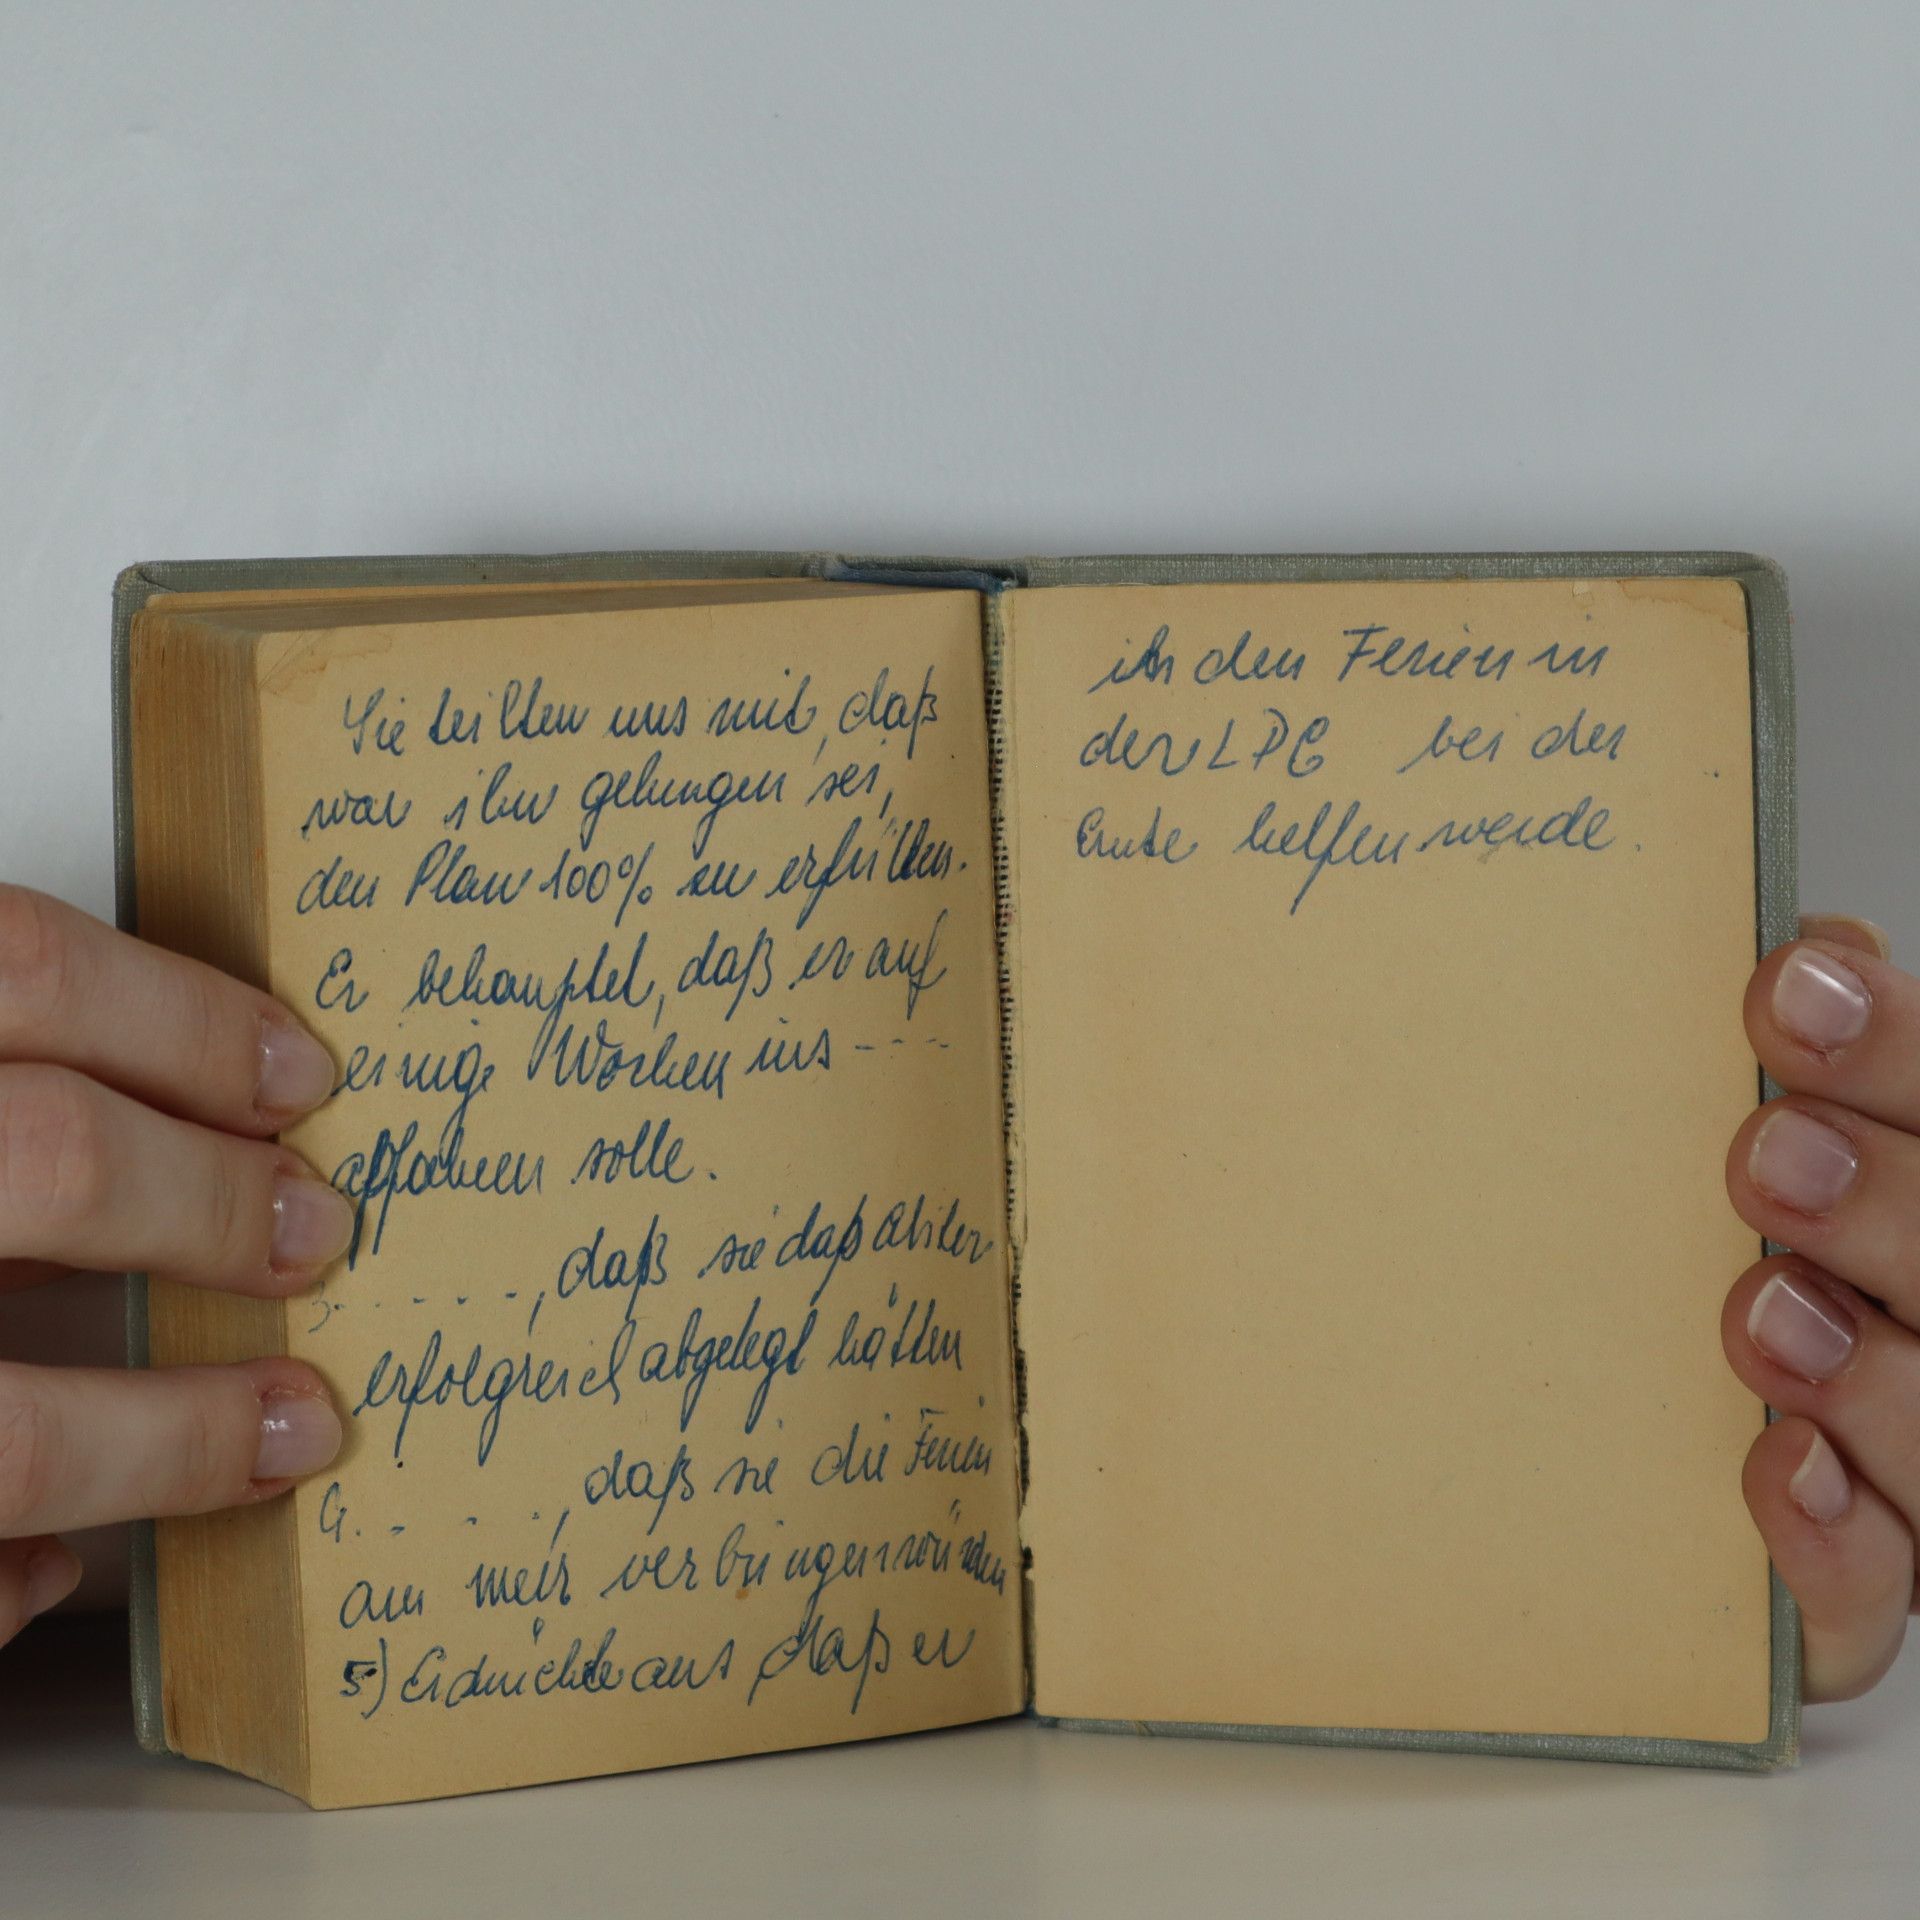 Sie teilten uns mit, daß
war ihn gelungen sei,
den Plan 100% zu erfüllen.
Er behauptet, daß er auf
einige Wochen ins ----
abfahren solle.
3. - - - - -, daß sie daß Abitur
erfolgreich abgelegt hätten
4. - - - -, daß sie die Ferien
am meir verbringen würden
5) Er drückte aus, daß er
in den Ferien in
der LPG bei der
Ernte helfen werde.